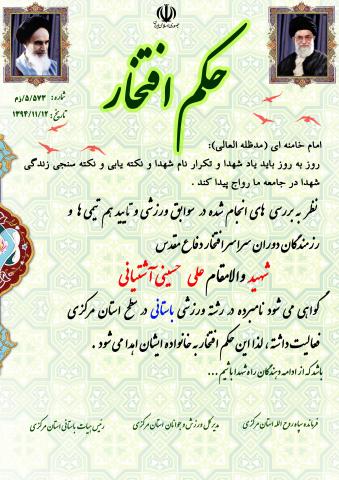 جمهوری اسلامی ایران
حکم افتخار
شماره : ۵/۵۷۳/دم
تاریخ : ۱۳۹۴/۱۱/۱۲
امام خامنه ای (مدظله العالی):
روز به روز باید یاد شهدا و تکرار نام شهدا و نکته یابی و نکته سنجی زندگی
شهدا در جامعه ما رواج پیدا کند .
نظر به بررسی های انجام شده در سوابق ورزشی و تایید هم تیمی ها و
رزمندگان دوران سراسر افتخار دفاع مقدس
شهید والامقام علی حسینی آشتیانی
گواهی می شود نامبرده در رشته ورزشی باستانی در سطح استان مرکزی
فعالیت داشته ، لذا این حکم افتخار به خانواده ایشان اهدا می شود .
باشد که از ادامه دهندگان راه شهدا باشیم...
فرمانده سپاه روح الله استان مرکزی
مدیر کل ورزش و جوانان استان مرکزی
رئیس هیات باستانی استان مرکزی